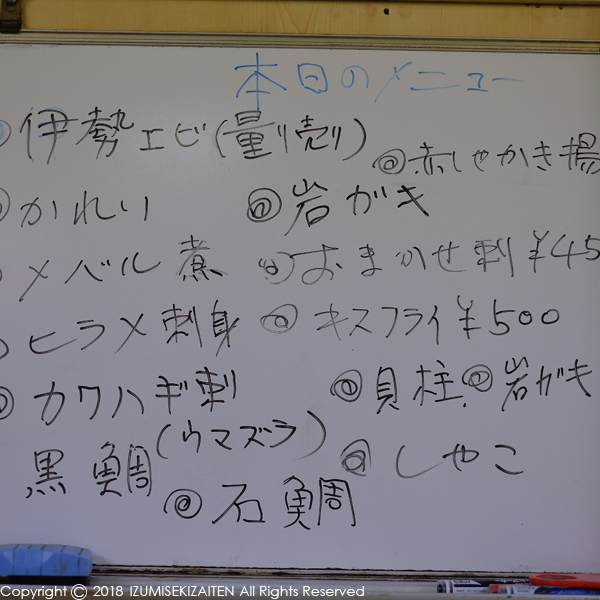 本日のメニュー
◎伊勢エビ(量り売り)
◎赤しゃかき揚
◎かれい ◎岩ガキ
メバル煮 ◎おまかせ刺¥45
ヒラメ刺身 ◎キスフライ¥500
◎カワハギ刺 ◎貝柱 ◎岩ガキ
(ウマズラ)
黒鯛 ◎しゃこ
◎石鯛
Copyright © 2018 IZUMISEKIZAITEN All Rights Reserved